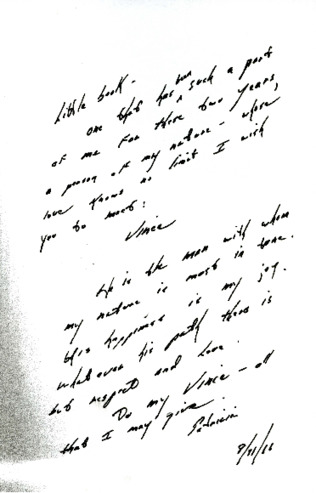 Little book -
one that has been such a part
of me for these two years,
a person of my nature - whose
love knows no limit I wish
you to meet:
Vince
He is the man with whom
my nature is most in tune.
His happiness is my joy.
whatever his path there is
but respect and love.
To my Vince - all
that I may give.